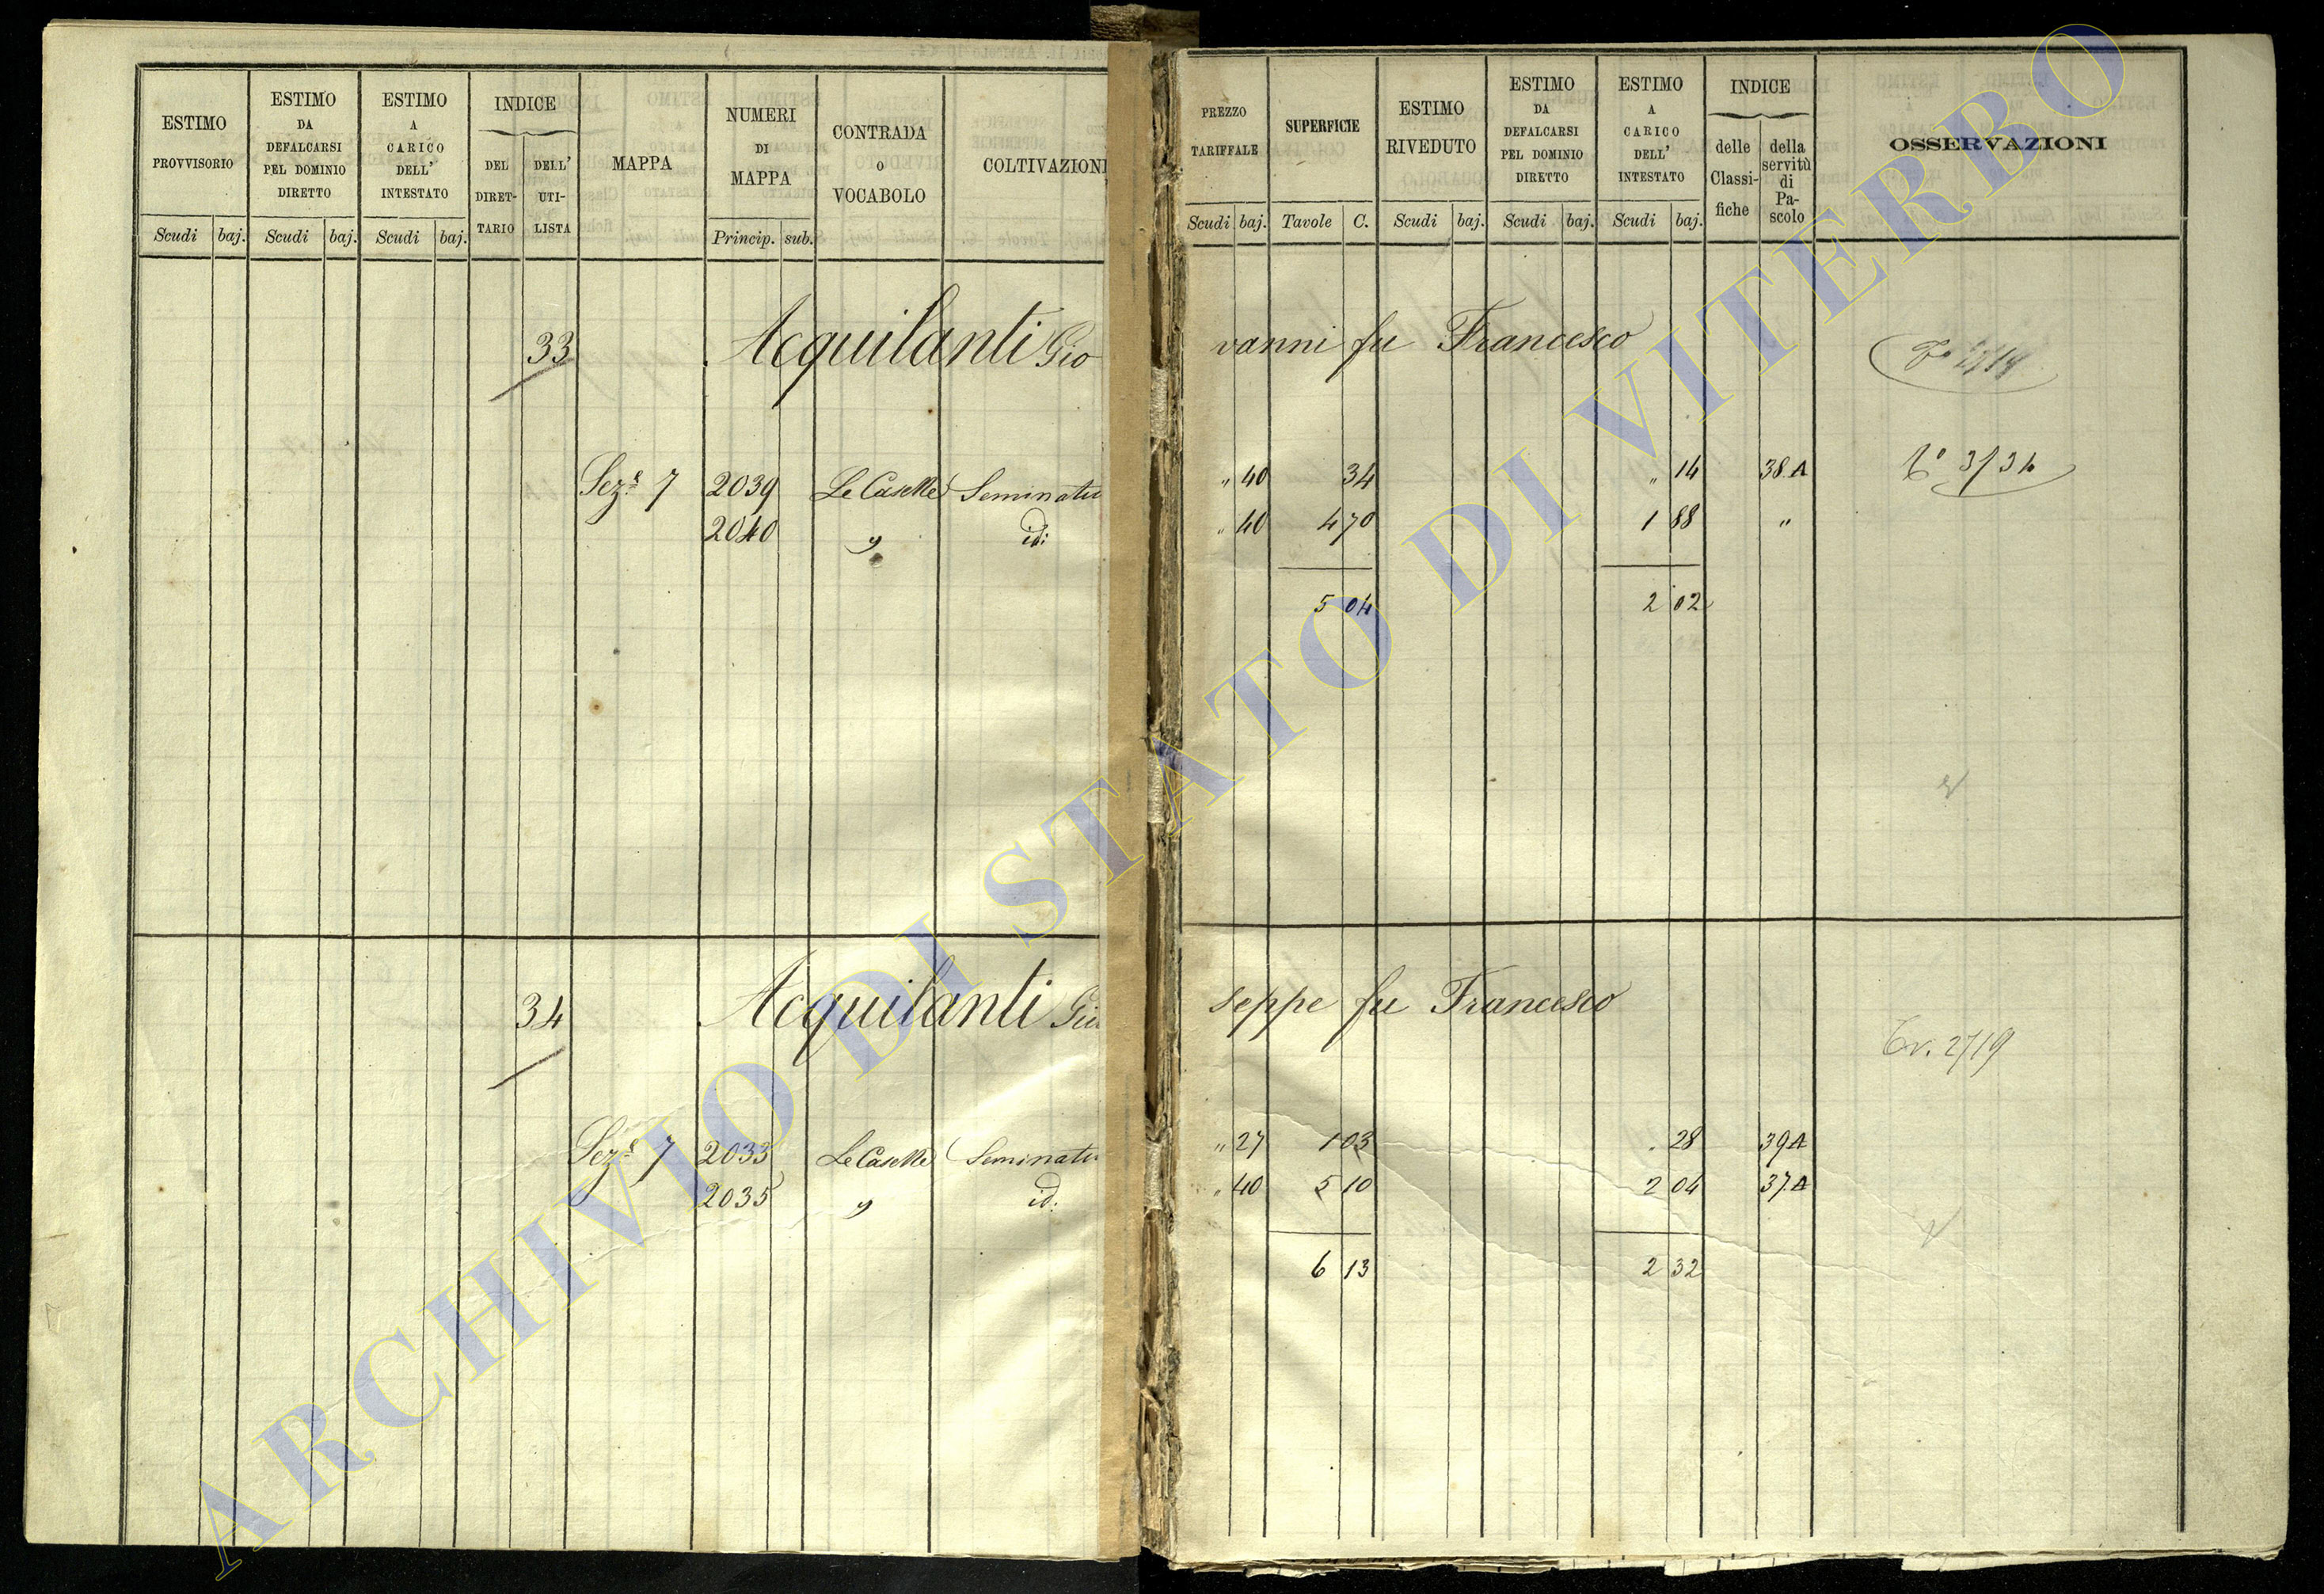 ESTIMO PROVVISORIO
Scudi baj.
ESTIMO DA DEFALCARSI PEL DOMINIO DIRETTO
Scudi baj.
ESTIMO A CARICO DELL' INTESTATO
Scudi baj.
INDICE
DEL DIRET- TARIO
DELL' UTI- LISTA
MAPPA
NUMERI DI MAPPA
Princip. sub.
CONTRADA o VOCABOLO
COLTIVAZIONI
PREZZO TARIFFALE
Scudi baj.
SUPERFICIE
Tavole C.
ESTIMO RIVEDUTO
Scudi baj.
ESTIMO DA DEFALCARSI PEL DOMINIO DIRETTO
Scudi baj.
ESTIMO A CARICO DELL' INTESTATO
Scudi baj.
INDICE
delle Classi- fiche
della servitù di Pa- scolo
OSSERVAZIONI
33 Acquilanti Gio vanni fu Francesco
Sez.e 7 2039 Le Caselle Seminati " 40 34 " 14 38.A 3/34
2040 " id: " 40 4 70 1 88 "
5 04 2 02
34 Acquilanti Giu seppe fu Francesco
Tr. 2719
Sez.e 7 2033 Le Caselle Seminati " 27 1 03 " 28 39A
2035 " id. " 40 5 10 2 04 37.A
6 13 2 32
ARCHIVIO DI STATO DI VITERBO